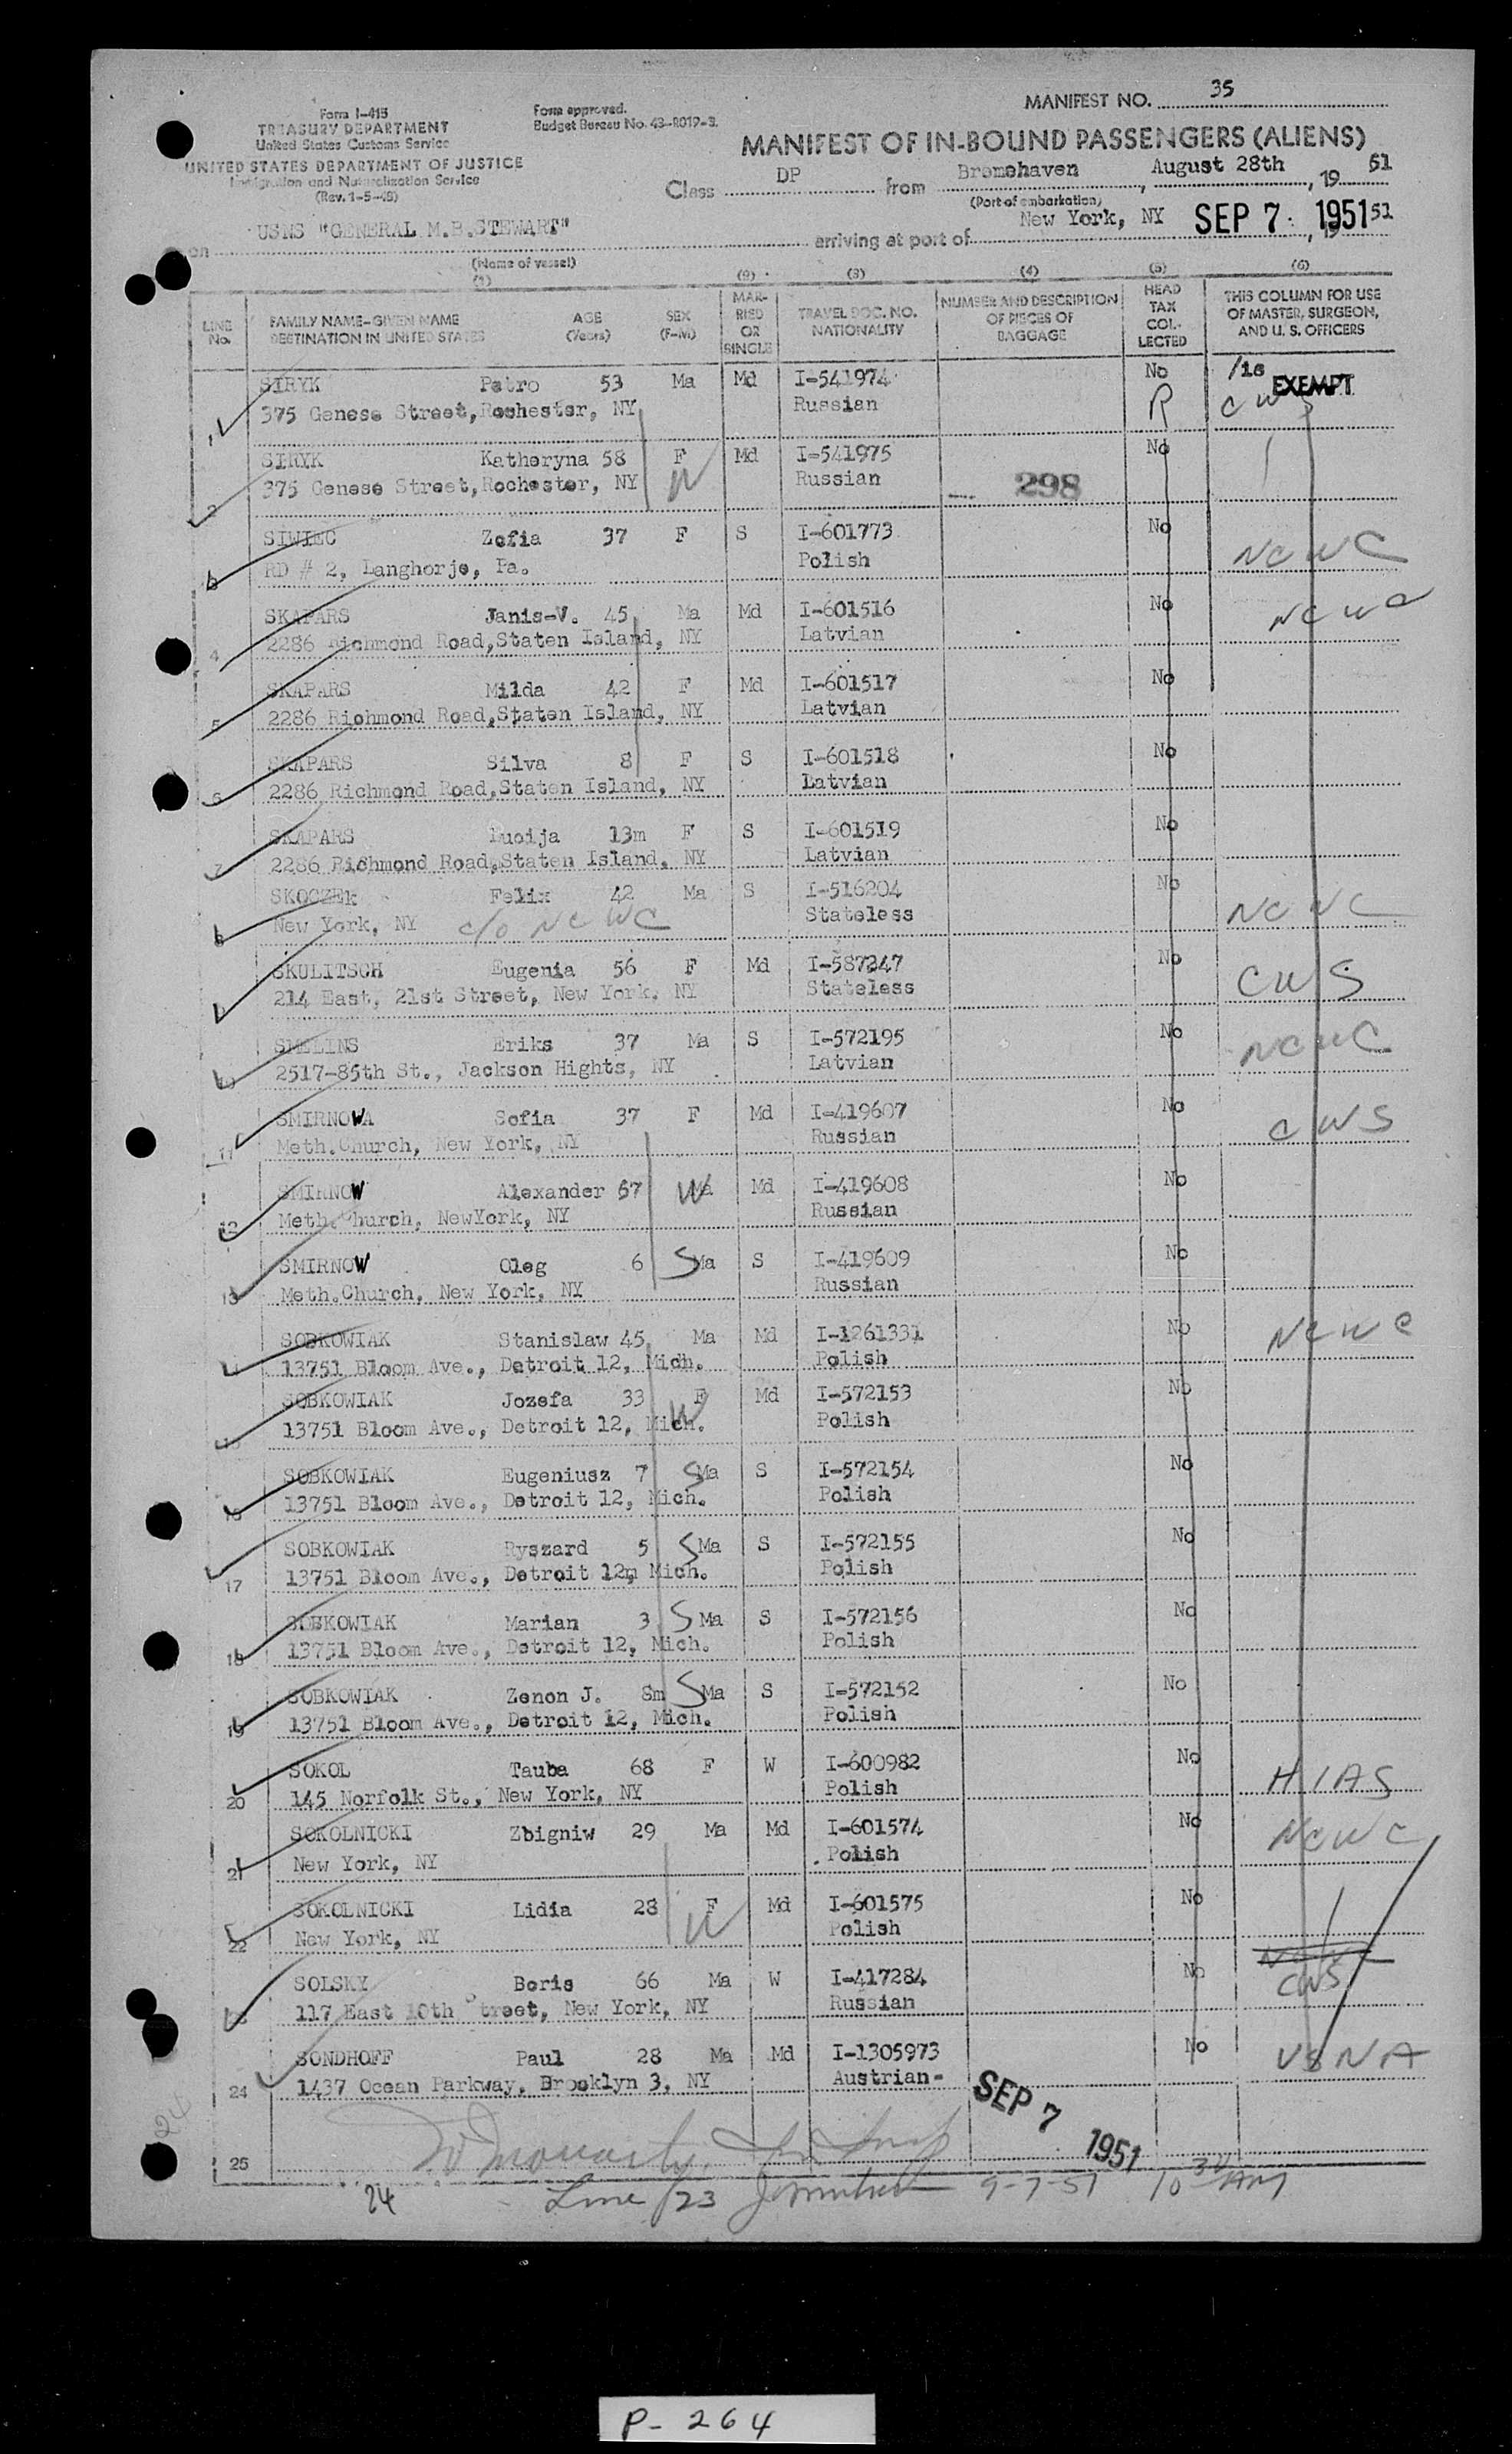 MANIFEST NO. 35
Form I-415
TREASURY DEPARTMENT
United States Customs Service
UNITED STATES DEPARTMENT OF JUSTICE
Immigration and Naturalization Service
(Rev. 1-5-49)
Form approved.
Budget Bureau No. 43-R019-3.
MANIFEST OF IN-BOUND PASSENGERS (ALIENS)
Class DP from Bremehaven, August 28th, 19 51
(Port of embarkation)
on USNS "GENERAL M.B.STEWART" arriving at port of New York, NY SEP 7 1951 , 19 51
(Name of vessel)
(1) (2) (3) (4) (5) (6)
LINE No.
FAMILY NAME-GIVEN NAME DESTINATION IN UNITED STATES
AGE (Years)
SEX (F-M)
MARRIED OR SINGLE
TRAVEL DOC. NO. NATIONALITY
NUMBER AND DESCRIPTION OF PIECES OF BAGGAGE
HEAD TAX COLLECTED
THIS COLUMN FOR USE OF MASTER, SURGEON, AND U. S. OFFICERS
1 SIRYK Petro 53 Ma Md I-541974 No EXEMPT
375 Genese Street,Rochester, NY Russian R CWS
2 SIRYK Katheryna 58 F Md I-541975 No
375 Genese Street,Rochester, NY W Russian 298
SIWIEC Zofia 37 F S I-601773 No NCWC
RD # 2, Langhorje, Pa. Polish
4 SKAPARS Janis-V. 45 Ma Md I-601516 No NCWC
2286 Richmond Road,Staten Island, NY Latvian
5 SKAPARS Milda 42 F Md I-601517 No
2286 Richmond Road,Staten Island, NY Latvian
6 SKAPARS Silva 8 F S I-601518 No
2286 Richmond Road,Staten Island, NY Latvian
7 SKAPARS Lucija 13m F S I-601519 No
2286 Richmond Road,Staten Island, NY Latvian
8 SKOCZEk Felix 42 Ma S I-516204 No NCWC
New York, NY c/o NCWC Stateless
SKULITSCH Eugenia 56 F Md I-587247 No CWS
214 East, 21st Street, New York, NY Stateless
10 SMELINS Eriks 37 Ma S I-572195 No NCWC
2517-85th St., Jackson Hights, NY Latvian
11 SMIRNOWA Sofia 37 F Md I-419607 No CWS
Meth.Church, New York, NY Russian
12 SMIRNOW Alexander 67 W Ma Md I-419608 No
Meth.Church, NewYork, NY Russian
13 SMIRNOW Oleg 6 S Ma S I-419609 No
Meth.Church, New York, NY Russian
14 SOBKOWIAK Stanislaw 45 Ma Md I-1261331 No NCWC
13751 Bloom Ave., Detroit 12, Mich. Polish
15 SOBKOWIAK Jozefa 33 F Md I-572153 No
13751 Bloom Ave., Detroit 12, Mich. W Polish
16 SOBKOWIAK Eugeniusz 7 S Ma S I-572154 No
13751 Bloom Ave., Detroit 12, Mich. Polish
17 SOBKOWIAK Ryszard 5 S Ma S I-572155 No
13751 Bloom Ave., Detroit 12m Mich. Polish
18 SOBKOWIAK Marian 3 S Ma S I-572156 No
13751 Bloom Ave., Detroit 12, Mich. Polish
19 SOBKOWIAK Zenon J. 8m S Ma S I-572152 No
13751 Bloom Ave., Detroit 12, Mich. Polish
20 SOKOL Tauba 68 F W I-600982 No HIAS
145 Norfolk St., New York, NY Polish
21 SOKOLNICKI Zbigniw 29 Ma Md I-601574 No NCWC
New York, NY Polish
22 SOKOLNICKI Lidia 28 F Md I-601575 No
New York, NY W Polish
SOLSKY Boris 66 Ma W I-417284 No CWS
117 East 10th Street, New York, NY Russian
24 SONDHOFF Paul 28 Ma Md I-1305973 No USNA
1437 Ocean Parkway, Brooklyn 3, NY Austrian
SEP 7 1951
25
24
24 Line 23 9-7-51 10 30 AM
P-264